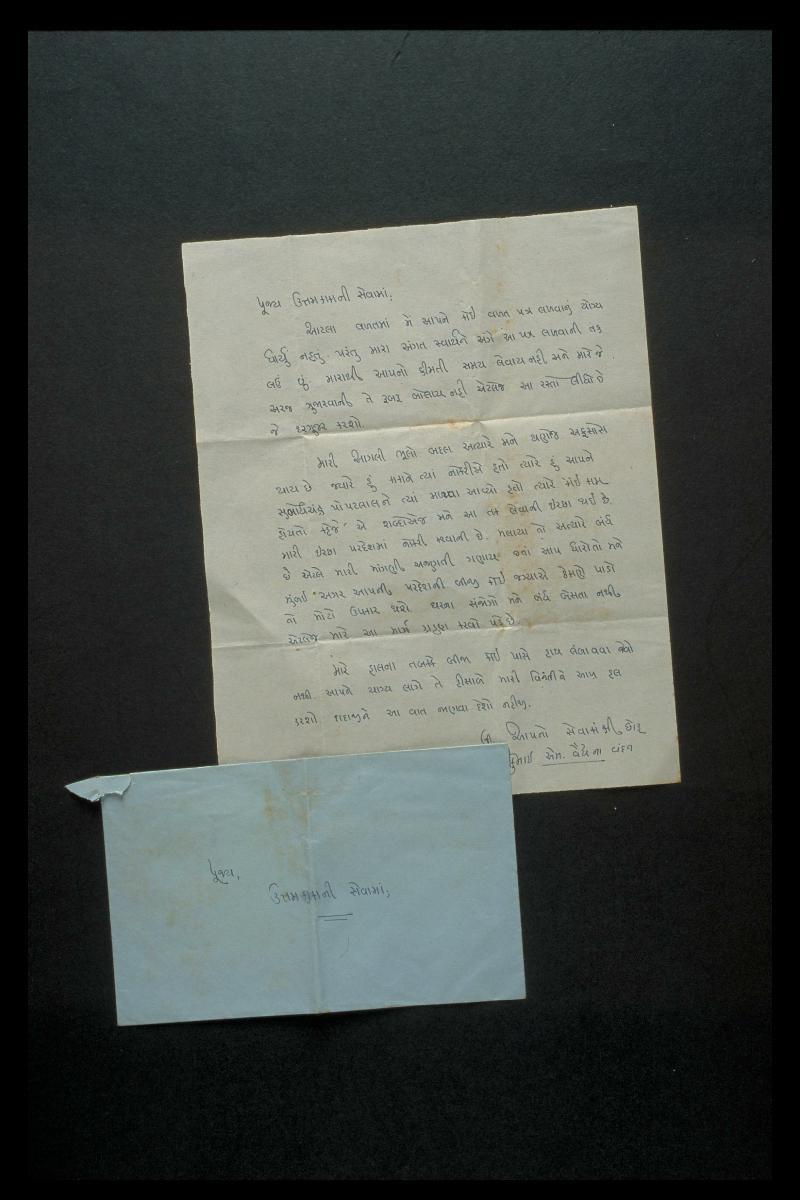 પૂજ્ય ઉત્તમકાકાની સેવામાં;
આટલા વખતમાં મેં આપને કોઈ વખત પત્ર લખવાનું યોગ્ય
ધાર્યું નહતુ. પરંતુ મારા અંગત સ્વાર્થને અંગે આ પત્ર લખવાની તક
લઉ છું મારાથી આપનો કીમતી સમય લેવાય નહી અને મારે જે
અરજ ગુજારવાની તે રૂબરૂ બોલાય નહી એટલેજ આ રસ્તો લીધો છે
જે દરગુજર કરશો.
મારી આગલી ભુલો બદલ અત્યારે મને ઘણોજ અફસોસ
થાય છે જ્યારે હું કાકાને ત્યાં નોકરીએ હતો ત્યારે હું આપને
પોપટલાલને ત્યાં મળવા આવ્યો હતો ત્યારે કોઈ કામ
હોયતો કહેજે" એ શબ્દોએજ મને આ તક લેવાની ઇચ્છા થઈ છે.
મારી ઇચ્છા પરદેશમાં નોકરી કરવાની છે. મલાયા તો અત્યારે બંધ
છે એટલે મારી માંગણી અજુગતી ગણાય છતાં આપ ધારોતો મને
મુંબઈ અગર આપની પરદેશની બીજી કોઈ જગ્યાએ ઠેકાણે પાડો
તો મોટો ઉપકાર થશે. ઘરના સંજોગો મને બંધ બેસતા નથી
એટલેજ મારે આ માર્ગ ગ્રહણ કરવો પડે છે.
મારે હાલના તબક્કે બીજા કોઈ પાસે હાથ લંબાવવા જેવો
નથી. આપને યોગ્ય લાગે તે હીસાબે મારી વિનંતીને આપ હલ
કરશો. દાદાજીને આ વાત જાણવા દેશો નહીજ.
લી. આપનો સેવાકાંક્ષી છોરૂ
એમ. વૈદ્ય ના વંદન
પૂજ્ય,
ઉત્તમકાકાની સેવામાં;